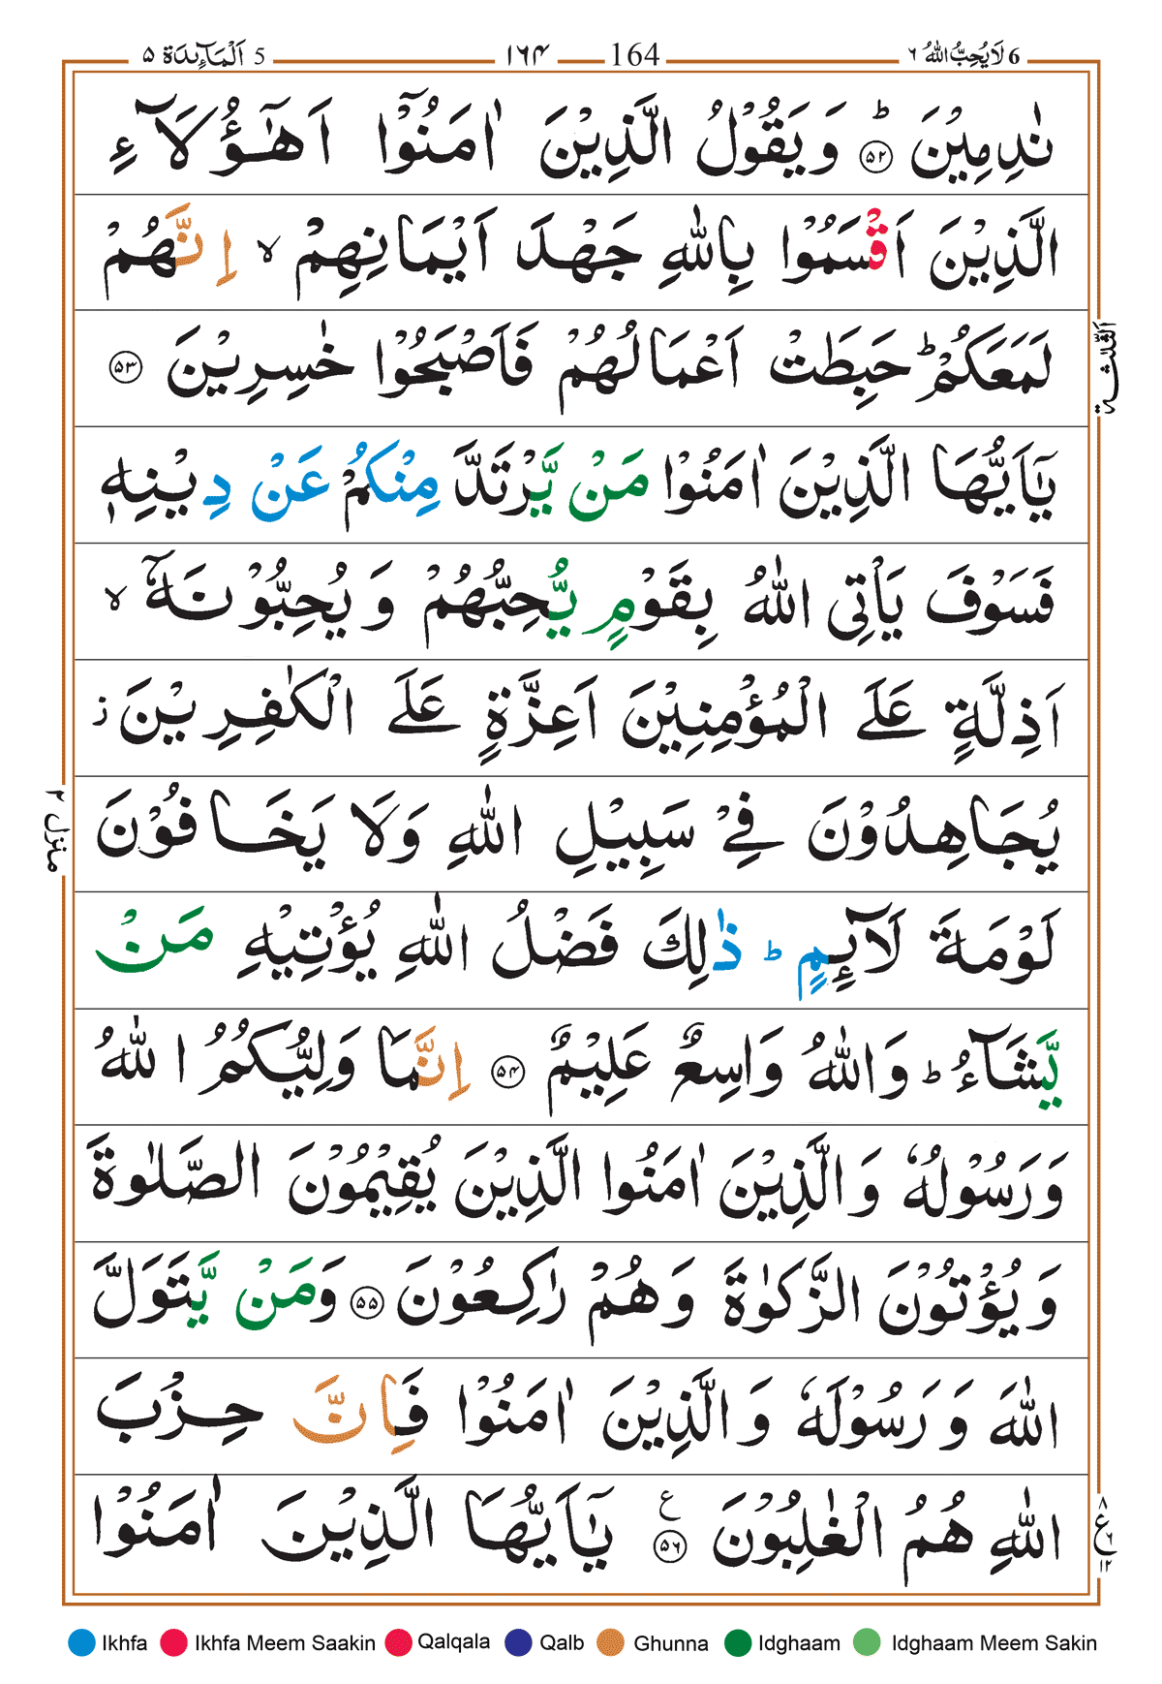 6 لَا يُحِبُّ اللّٰهُ ٦ 164 ١٦۴ 5 اَلْمَآئِدَة ۵
نٰدِمِيْنَ ؕ ۵۲ وَ يَقُوْلُ الَّذِيْنَ اٰمَنُوْۤا اَهٰۤؤُلَآءِ
الَّذِيْنَ اَقْسَمُوْا بِاللّٰهِ جَهْدَ اَيْمَانِهِمْ ۙ اِنَّهُمْ
لَمَعَكُمْ ؕ حَبِطَتْ اَعْمَالُهُمْ فَاَصْبَحُوْا خٰسِرِيْنَ ۵۳
الثلثة
يٰۤاَيُّهَا الَّذِيْنَ اٰمَنُوْا مَنْ يَّرْتَدَّ مِنْكُمْ عَنْ دِيْنِهٖ
فَسَوْفَ يَاْتِى اللّٰهُ بِقَوْمٍ يُّحِبُّهُمْ وَ يُحِبُّوْنَهٗۤ ۙ
اَذِلَّةٍ عَلَى الْمُؤْمِنِيْنَ اَعِزَّةٍ عَلَى الْكٰفِرِيْنَ ز
يُجَاهِدُوْنَ فِيْ سَبِيْلِ اللّٰهِ وَلَا يَخَافُوْنَ
منزل ٢
لَوْمَةَ لَآئِمٍ ؕ ذٰلِكَ فَضْلُ اللّٰهِ يُؤْتِيْهِ مَنْ
يَّشَآءُ ؕ وَاللّٰهُ وَاسِعٌ عَلِيْمٌ ۵۴ اِنَّمَا وَلِيُّكُمُ اللّٰهُ
وَرَسُوْلُهٗ وَالَّذِيْنَ اٰمَنُوا الَّذِيْنَ يُقِيْمُوْنَ الصَّلٰوةَ
وَيُؤْتُوْنَ الزَّكٰوةَ وَهُمْ رٰكِعُوْنَ ۵۵ وَمَنْ يَّتَوَلَّ
اللّٰهَ وَ رَسُوْلَهٗ وَالَّذِيْنَ اٰمَنُوْا فَاِنَّ حِزْبَ
اللّٰهِ هُمُ الْغٰلِبُوْنَ ۵٦ ع يٰۤاَيُّهَا الَّذِيْنَ اٰمَنُوْا
٨ ع ٦ ١٢
Ikhfa Ikhfa Meem Saakin Qalqala Qalb Ghunna Idghaam Idghaam Meem Sakin